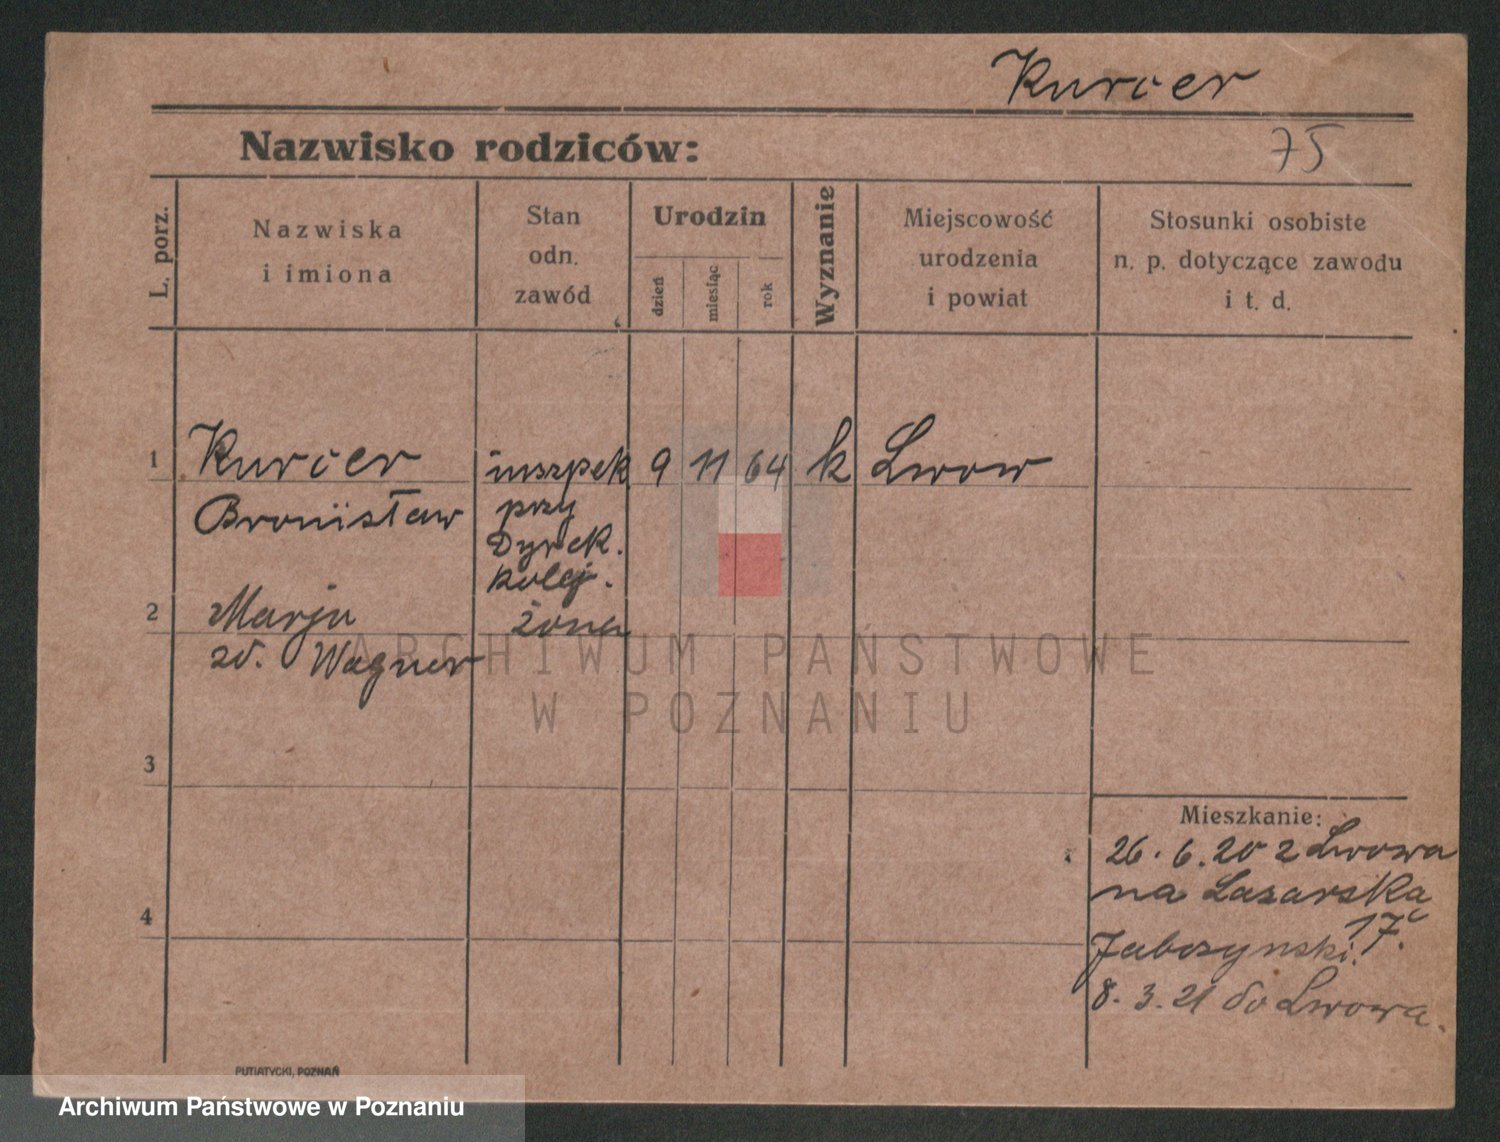 Kurcer
Nazwisko rodziców:
75
L. porz.
Nazwiska
i imiona
Stan
odn.
zawód
Urodzin
dzień
miesiąc
rok
Wyznanie
Miejscowość
urodzenia
i powiat
Stosunki osobiste
n. p. dotyczące zawodu
i t. d.
1
Kurcer
inszpek
9
11
64
k
Lwow
Bronisław
przy
Dyrek.
kolej.
2
Marja
żona
zd. Wagner
ARCHIWUM PAŃSTWOWE
W POZNANIU
3
Mieszkanie:
26.6.20 z Lwowa
na Lazarska
17.
4
8.3.21 do Lwowa.
PUTIATYCKI, POZNAŃ
Archiwum Państwowe w Poznaniu